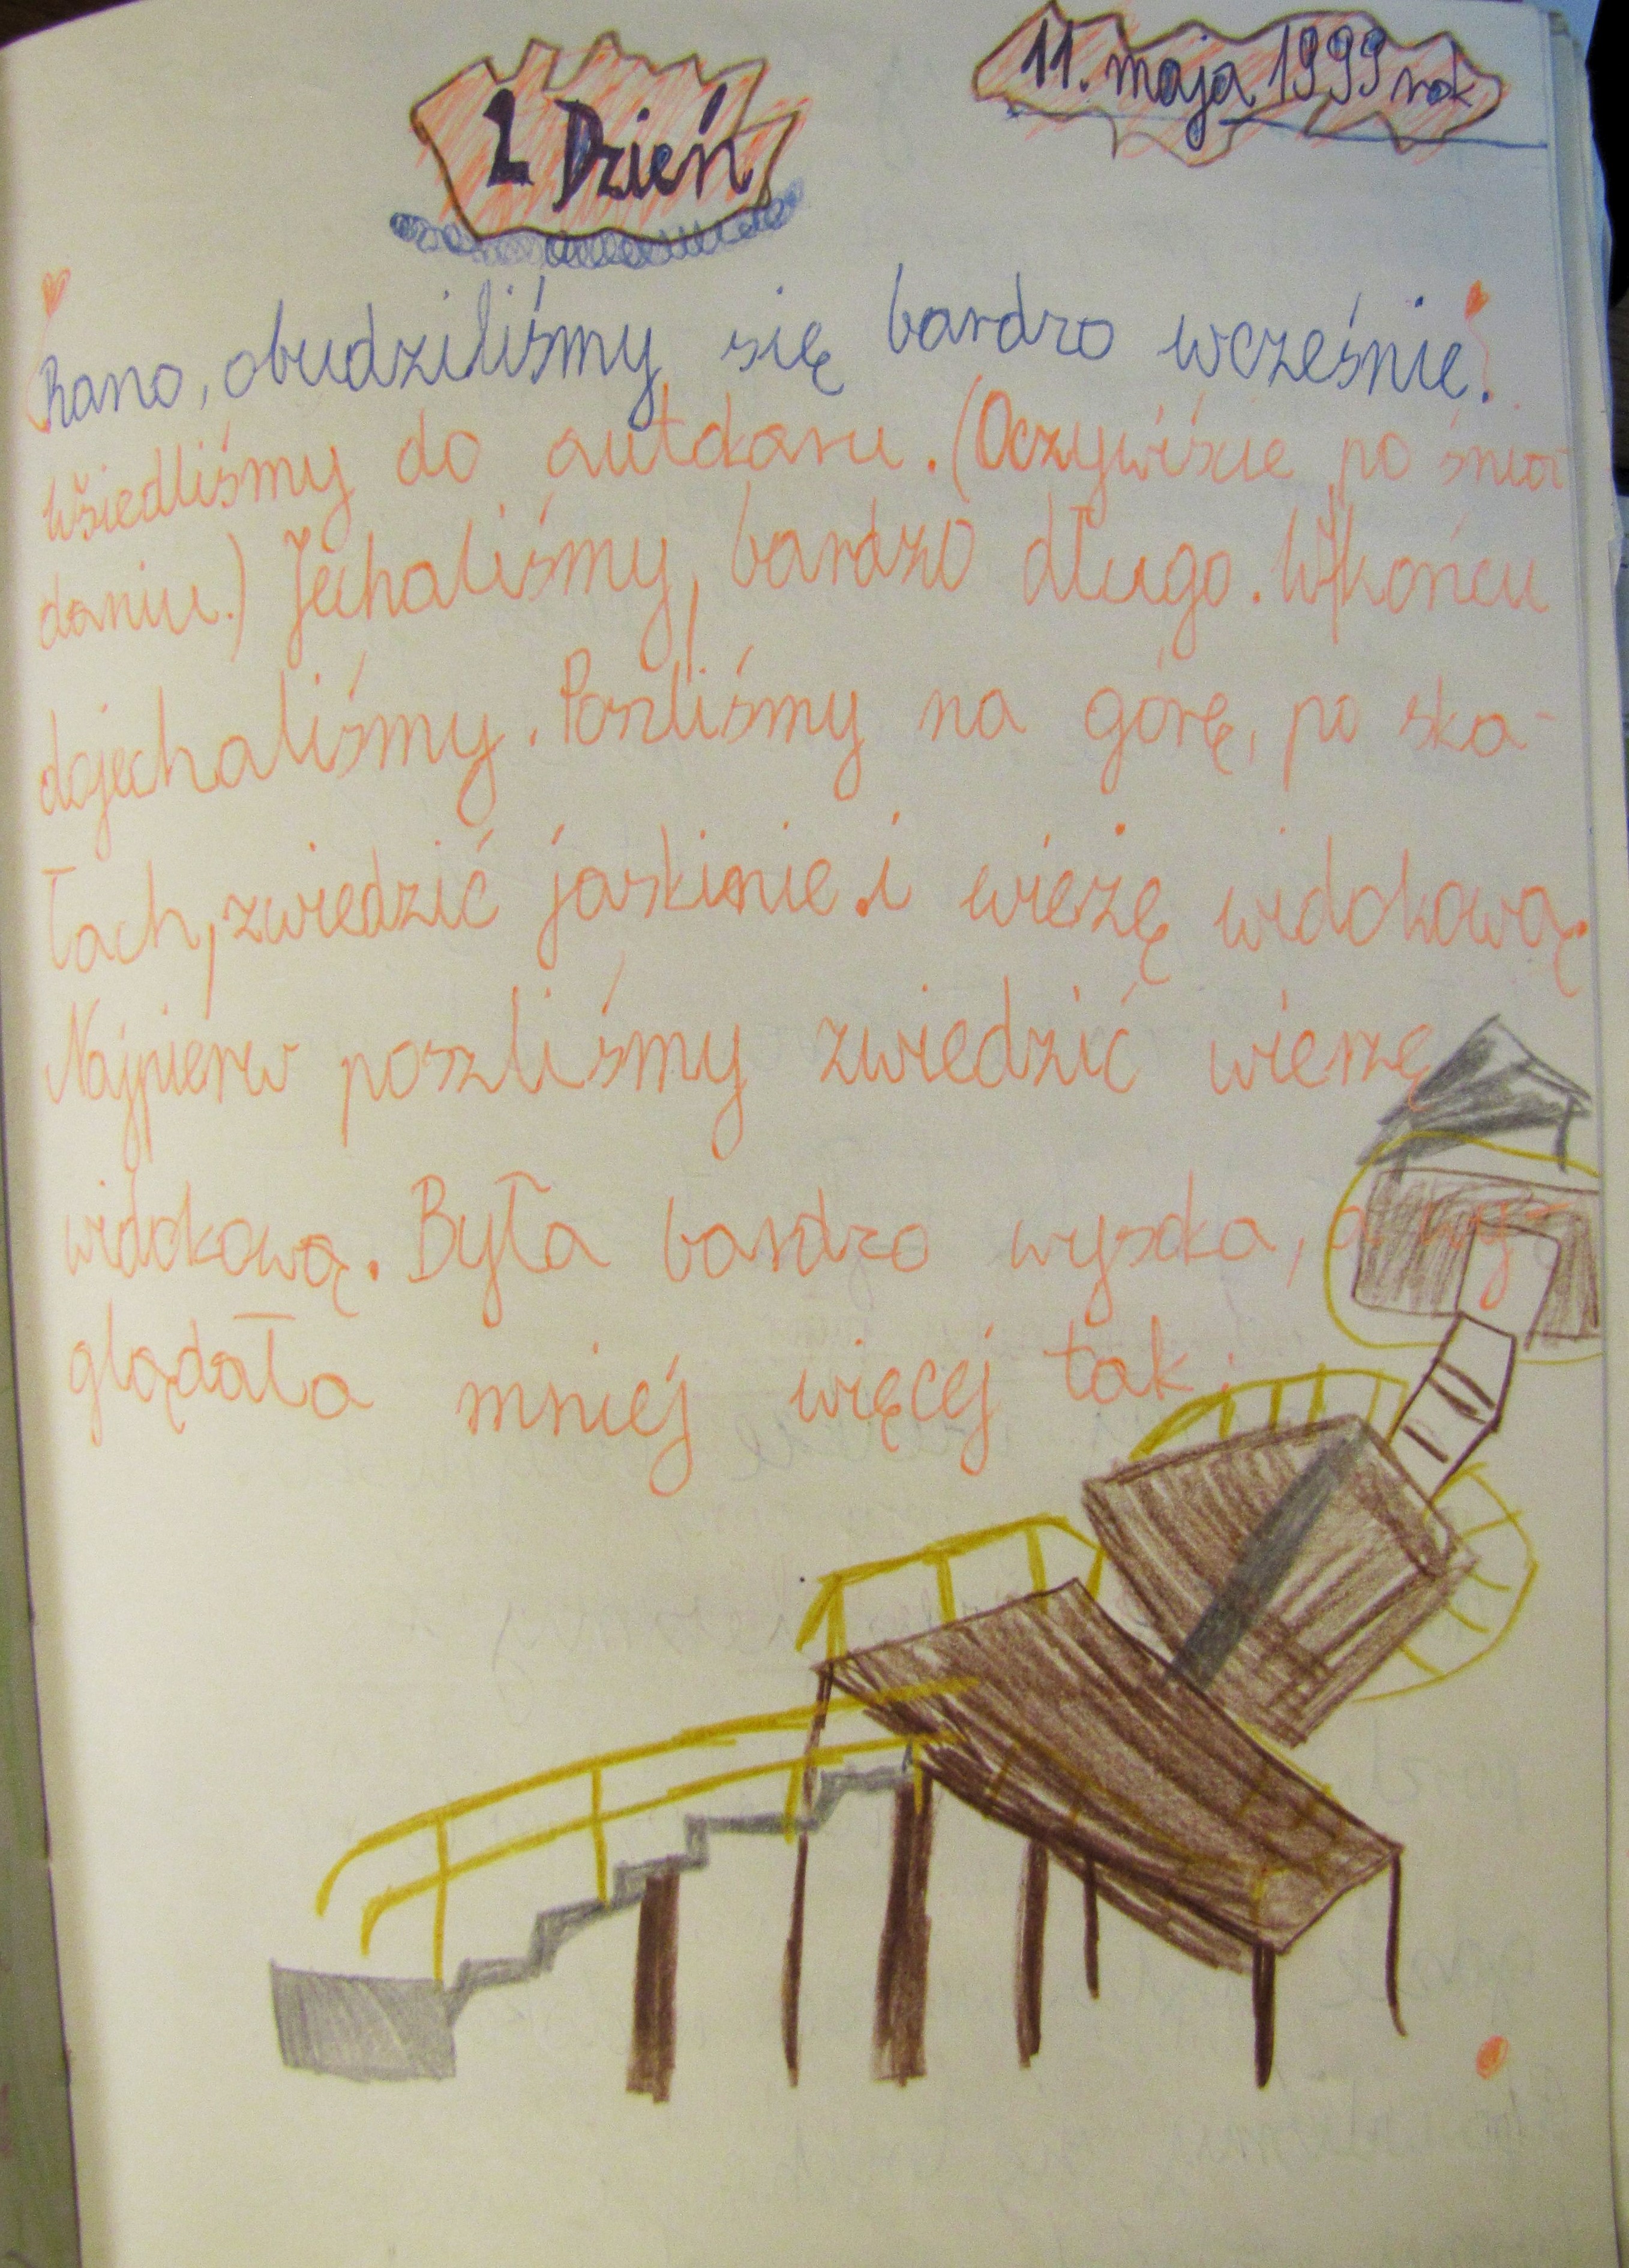 1 Dzień
11. maja 1999 rok
Rano, obudziliśmy się bardzo wcześnie.
Wsiedliśmy do autokaru. (Oczywiście po śnia
daniu.) Jechaliśmy, bardzo długo. Wkońcu
dojechaliśmy. Poszliśmy na górę, po ska-
łach, zwiedzić jaskinie i wieżę widokową.
Najpierw poszliśmy zwiedzić wierzę
widokową. Była bardzo wysoka, a wy
glądała mniej więcej tak: